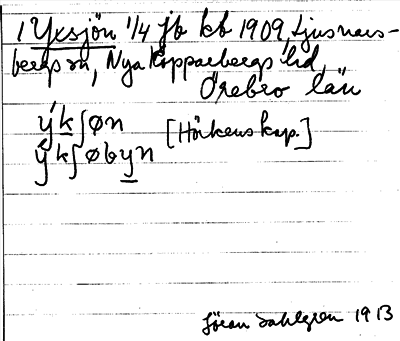 1 Yxsjön 1/4 jb kb 1909, Ljusnars-
bergs sn, Nya Kopparbergs hd,
Örebro län
ýkʃøn [Hörkens kap.]
ýkʃøbyn
Göran Dahlgren 1913